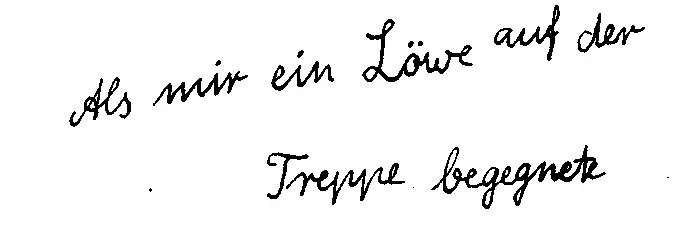 Als mir ein Löwe auf der
Treppe begegnete